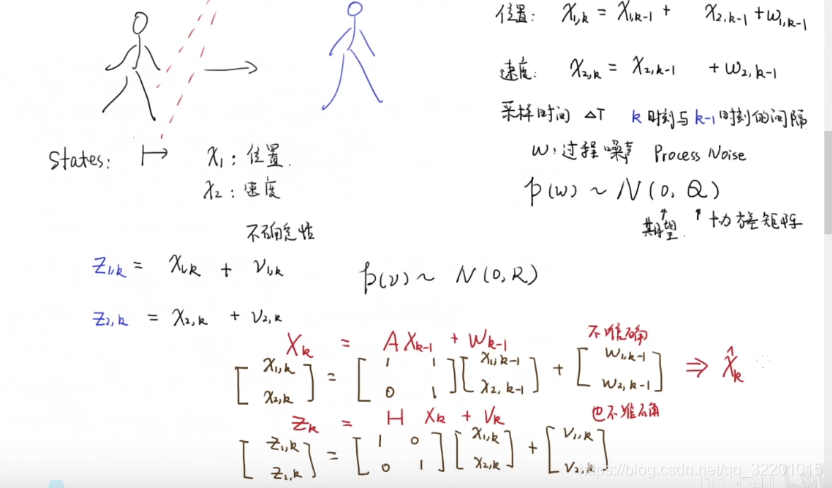 位置: X₁,k = X₁,k-1 + X₂,k-1 + w₁,k-1
速度: X₂,k = X₂,k-1 + w₂,k-1
采样时间 ΔT k时刻与k-1时刻的间隔
w: 过程噪声 Process Noise
p(w) ~ N(0, Q)
↑ ↑
期望 协方差矩阵
States: ↦ X₁: 位置.
X₂: 速度
不确定性
Z₁,k = X₁,k + V₁,k p(v) ~ N(0, R)
Z₂,k = X₂,k + V₂,k
不准确
X_k = A X_k-1 + W_k-1
[X₁,k X₂,k] = [1 1 0 1] [X₁,k-1 X₂,k-1] + [W₁,k-1 W₂,k-1] ⇒ X̂_k
也不准确
Z_k = H X_k + V_k
[Z₁,k Z₂,k] = [1 0 0 1] [X₁,k X₂,k] + [V₁,k V₂,k]
https://blog.csdn.net/qq_32201015